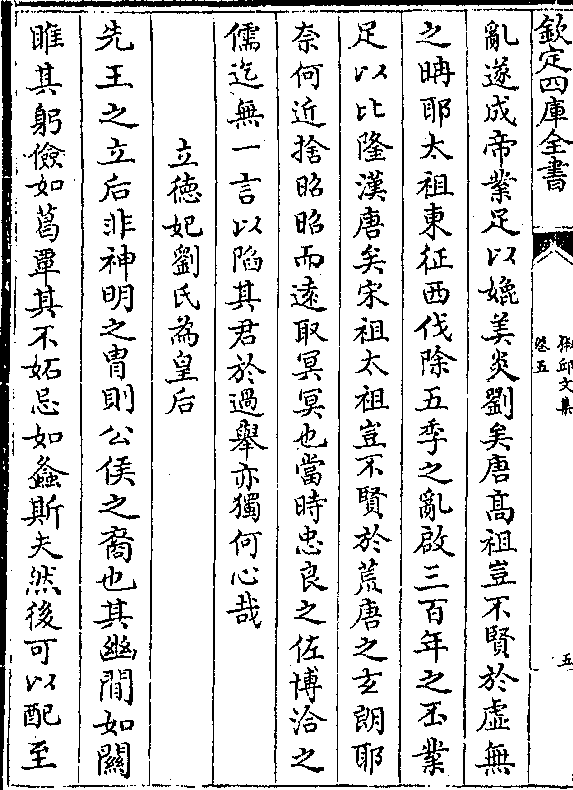 欽定四庫全書
卷五
五
亂遂成帝業足以媲美炎劉矣唐髙祖豈不賢於虚無
之𣆀耶太祖東征西伐除五季之亂啟三百年之丕業
足以比隆漢唐矣宋祖太祖豈不賢於荒唐之玄朗耶
奈何近捨昭昭而逺取冥冥也當時忠良之佐博洽之
儒迄無一言以陷其君於過舉亦獨何心哉
立德妃劉氏為皇后
先王之立后非神明之胄則公侯之裔也其幽閒如關
雎其躬儉如葛覃其不妬忌如螽斯夫然後可以配至